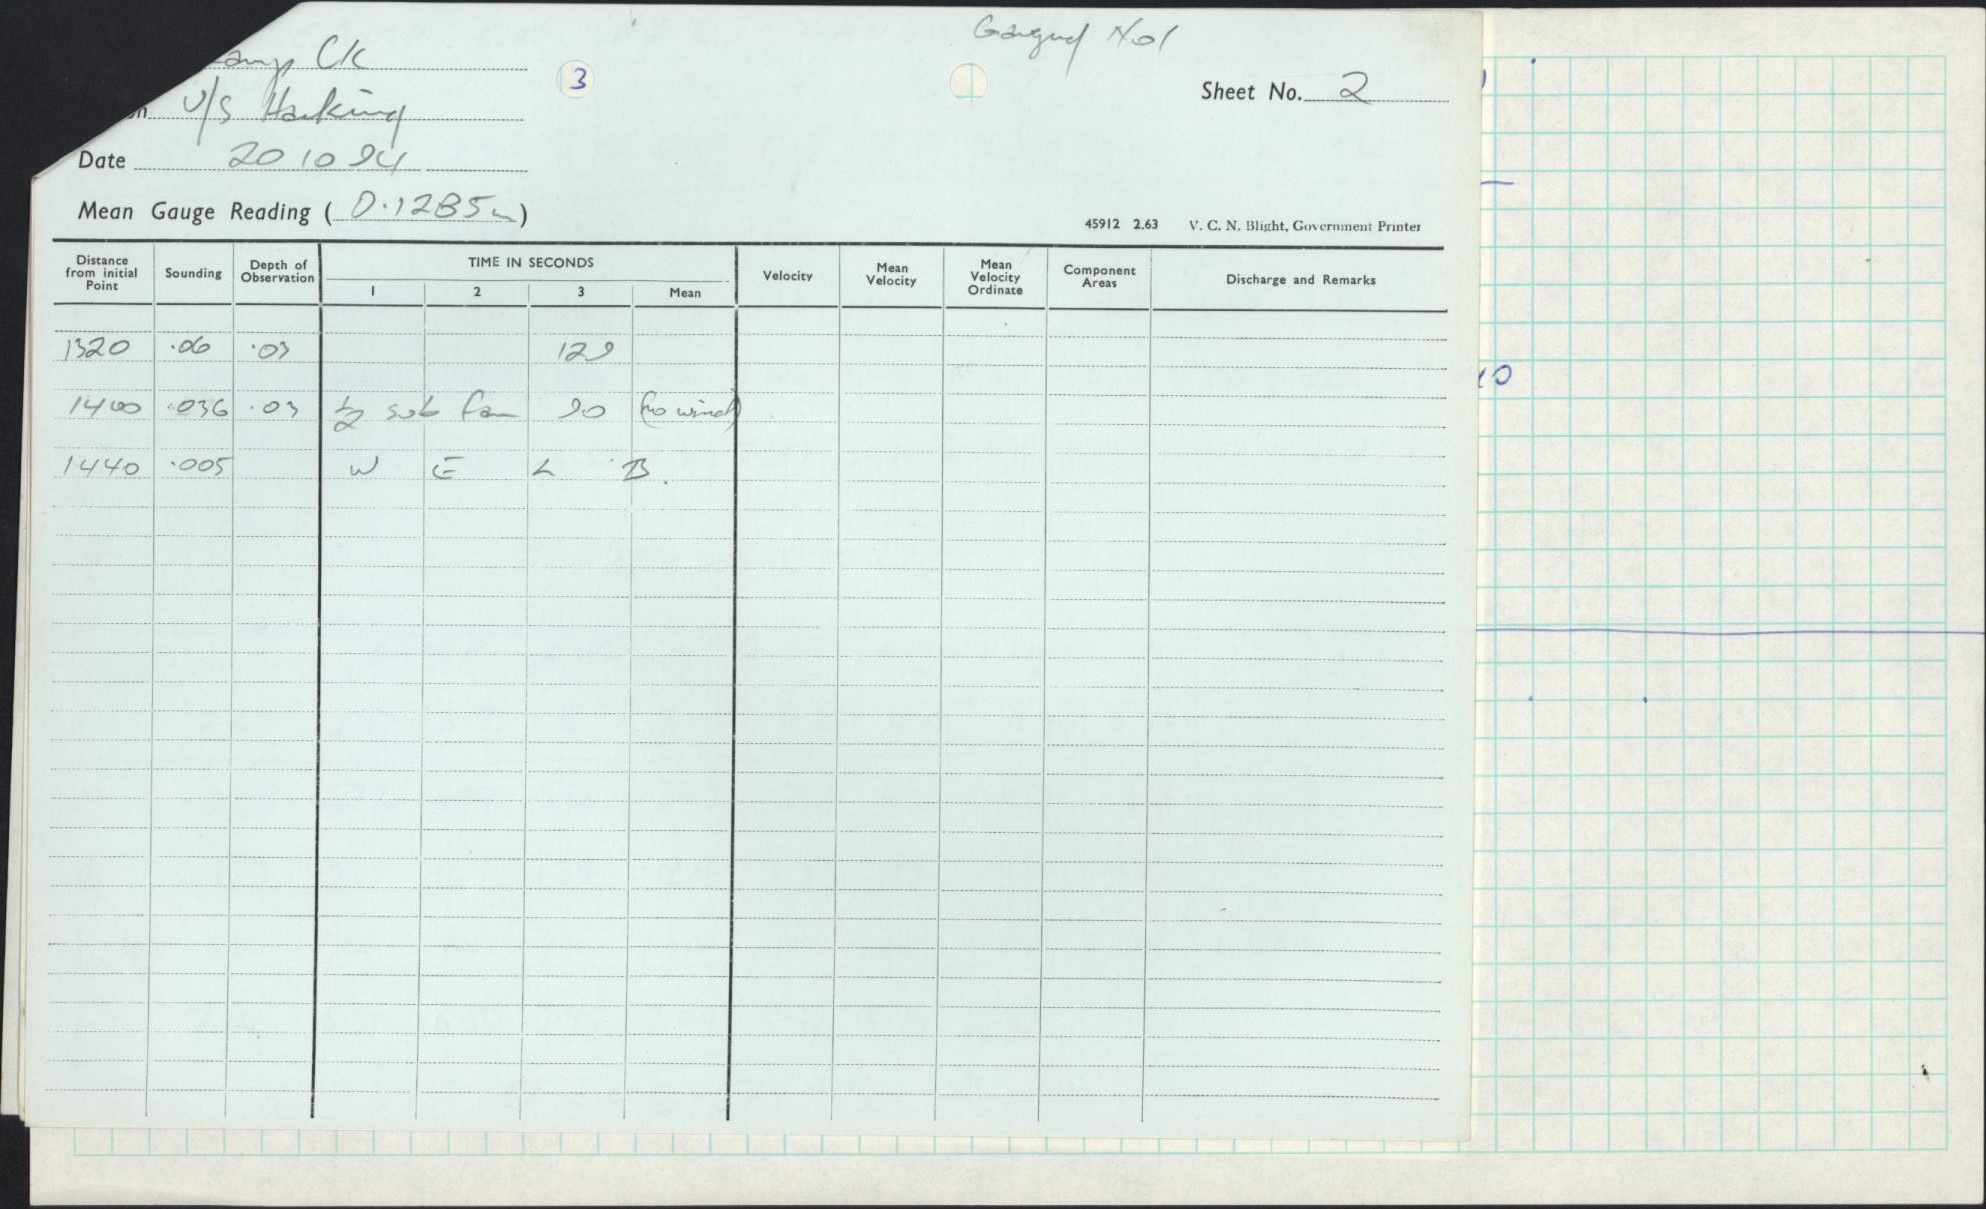 Gauging No1
Camp Ck
3
Sheet No. 2
U/S Hosking
Date 20 10 94
Mean Gauge Reading ( 0.1285m )
45912 2.63 V. C. N. Blight, Government Printer
Distance from initial Point Sounding Depth of Observation TIME IN SECONDS 1 2 3 Mean Velocity Mean Velocity Mean Velocity Ordinate Component Areas Discharge and Remarks
1320 .06 .03 129
1400 .036 .03 1/2 sub fan 90 (no wind)
1440 .005 W E L B.